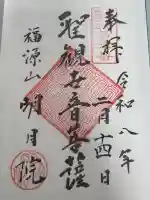 奉拝
令和八年
二月十四日
聖観世音菩薩
福源山
明月院